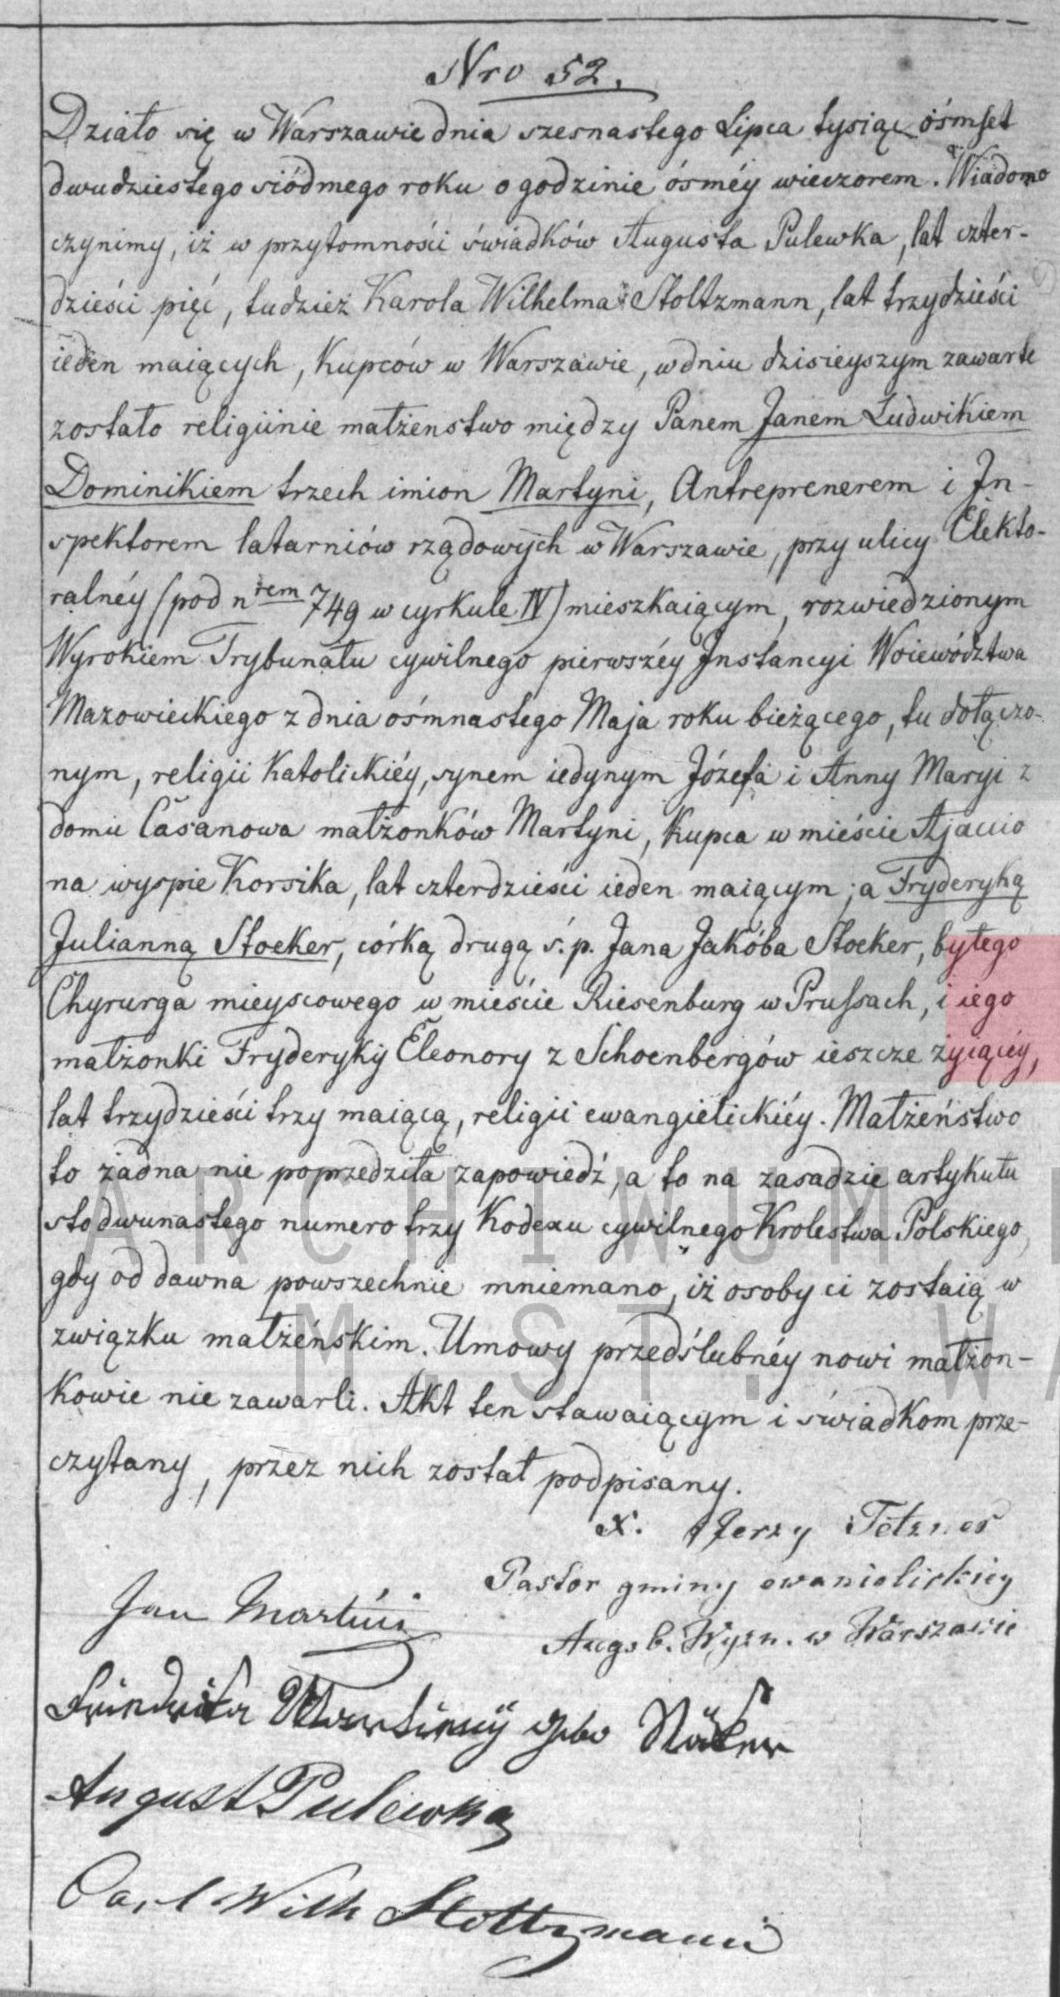 Nro 52.
Działo się w Warszawie dnia szesnastego Lipca tysiąc ośmset
dwudziestego siódmego roku o godzinie ósméy wieczorem. Wiadomo
czynimy, iż w przytomności świadków Augusta Pulewka, lat czter-
dzieści pięć, tudzież Karola Wilhelma Stoltzmann, lat trzydzieści
ieden maiących, Kupców w Warszawie, w dniu dzisieyszym zawarte
zostało religiinie małżenstwo między Panem Janem Ludwikiem
Dominikiem trzech imion Martyni, Antreprenerem i In-
spektorem latarniów rządowych w Warszawie, przy ulicy Elekto-
ralnéy (pod nrem 749 w cyrkule IV) mieszkaiącym, rozwiedzionym
Wyrokiem Trybunału cywilnego pierwszéy Instancyi Woiewództwa
Mazowieckiego z dnia ośmnastego Maja roku bieżącego, tu dołączo-
nym, religii Katolickiéy, synem iedynym Józefa i Anny Maryi z
domu Casanowa małżonków Martyni, Kupca w mieście Ajaccio
na wyspie Korsika, lat czterdzieści ieden maiącym; a Fryderyką
Julianną Stoeker, córką drugą ś. p. Jana Jakóba Stoeker, byłego
Chyrurga mieyscowego w mieście Riesenburg w Prussach, i iego
małżonki Fryderyki Eleonory z Schoenbergów ieszcze żyiącéy,
lat trzydzieści trzy maiącą, religii ewangielickiéy. Małżeństwo
to żadna nie poprzedziła zapowiedź, a to na zasadzie artykułu
sto dwunastego numero trzy Kodexu cywilnego Krolestwa Polskiego,
gdy od dawna powszechnie mniemano, iż osoby ci zostaią w
związku małżeńskim. Umowy przedślubnéy nowi małżon-
kowie nie zawarli. Akt ten stawaiącym i świadkom prze-
czytany, przez nich został podpisany.
X. Jerzy Tetzner
Pastor gminy ewanielickiey
Augsb. Wyzn. w Warszawie
Jan Martini
August Pulewka
Carl Wilh Stoltzmann
ARCHIWUM
M. ST. WA